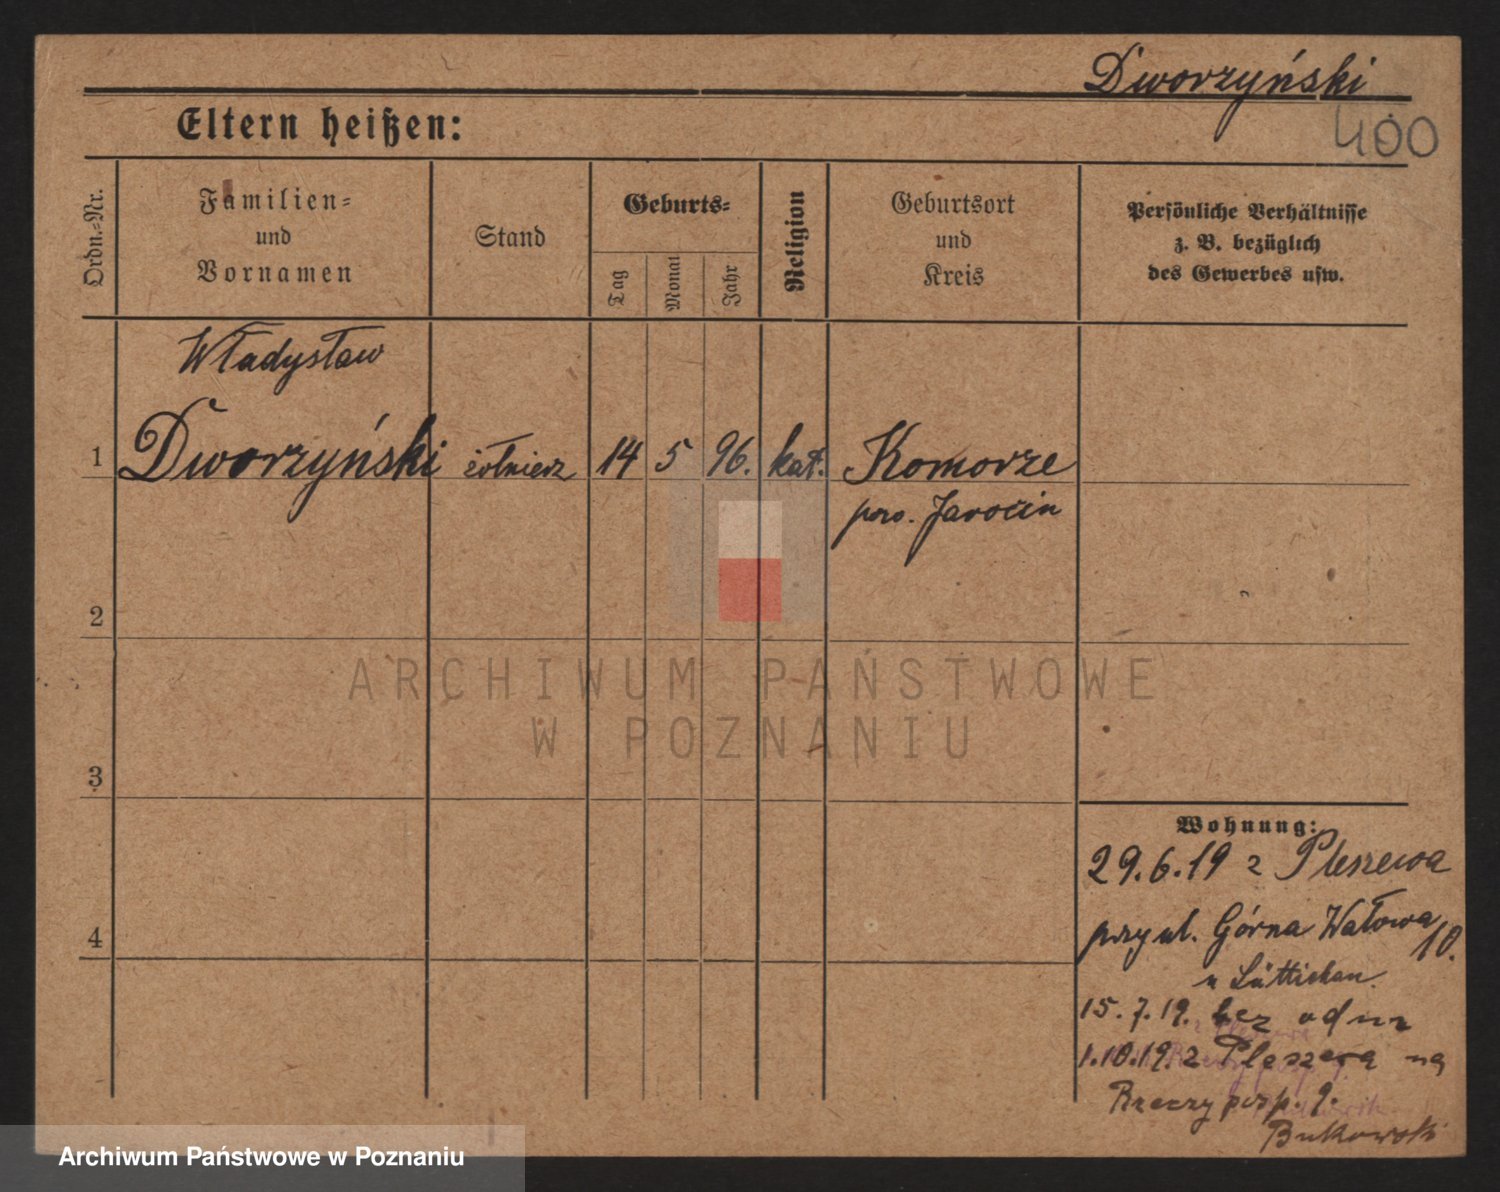 Dworzyński
400
Eltern heißen:
Ordn.-Nr.
Familien-
und
Vornamen
Stand
Geburts-
Tag
Monat
Jahr
Religion
Geburtsort
und
Kreis
Persönliche Verhältnisse
z. B. bezüglich
des Gewerbes usw.
Władysław
1 Dworzyński żołnierz 14 5 96. kat. Komorze
pow. Jarocin
2
3
4
ARCHIWUM PAŃSTWOWE
W POZNANIU
Wohnung:
29.6.19 z Pleszewa
przy ul. Górna Wałowa 10.
u Lüttichau.
15.7.19. bez odm
1.10.19. z Pleszewa na
Rzeczyposp. 9.
Bukowski
Archiwum Państwowe w Poznaniu